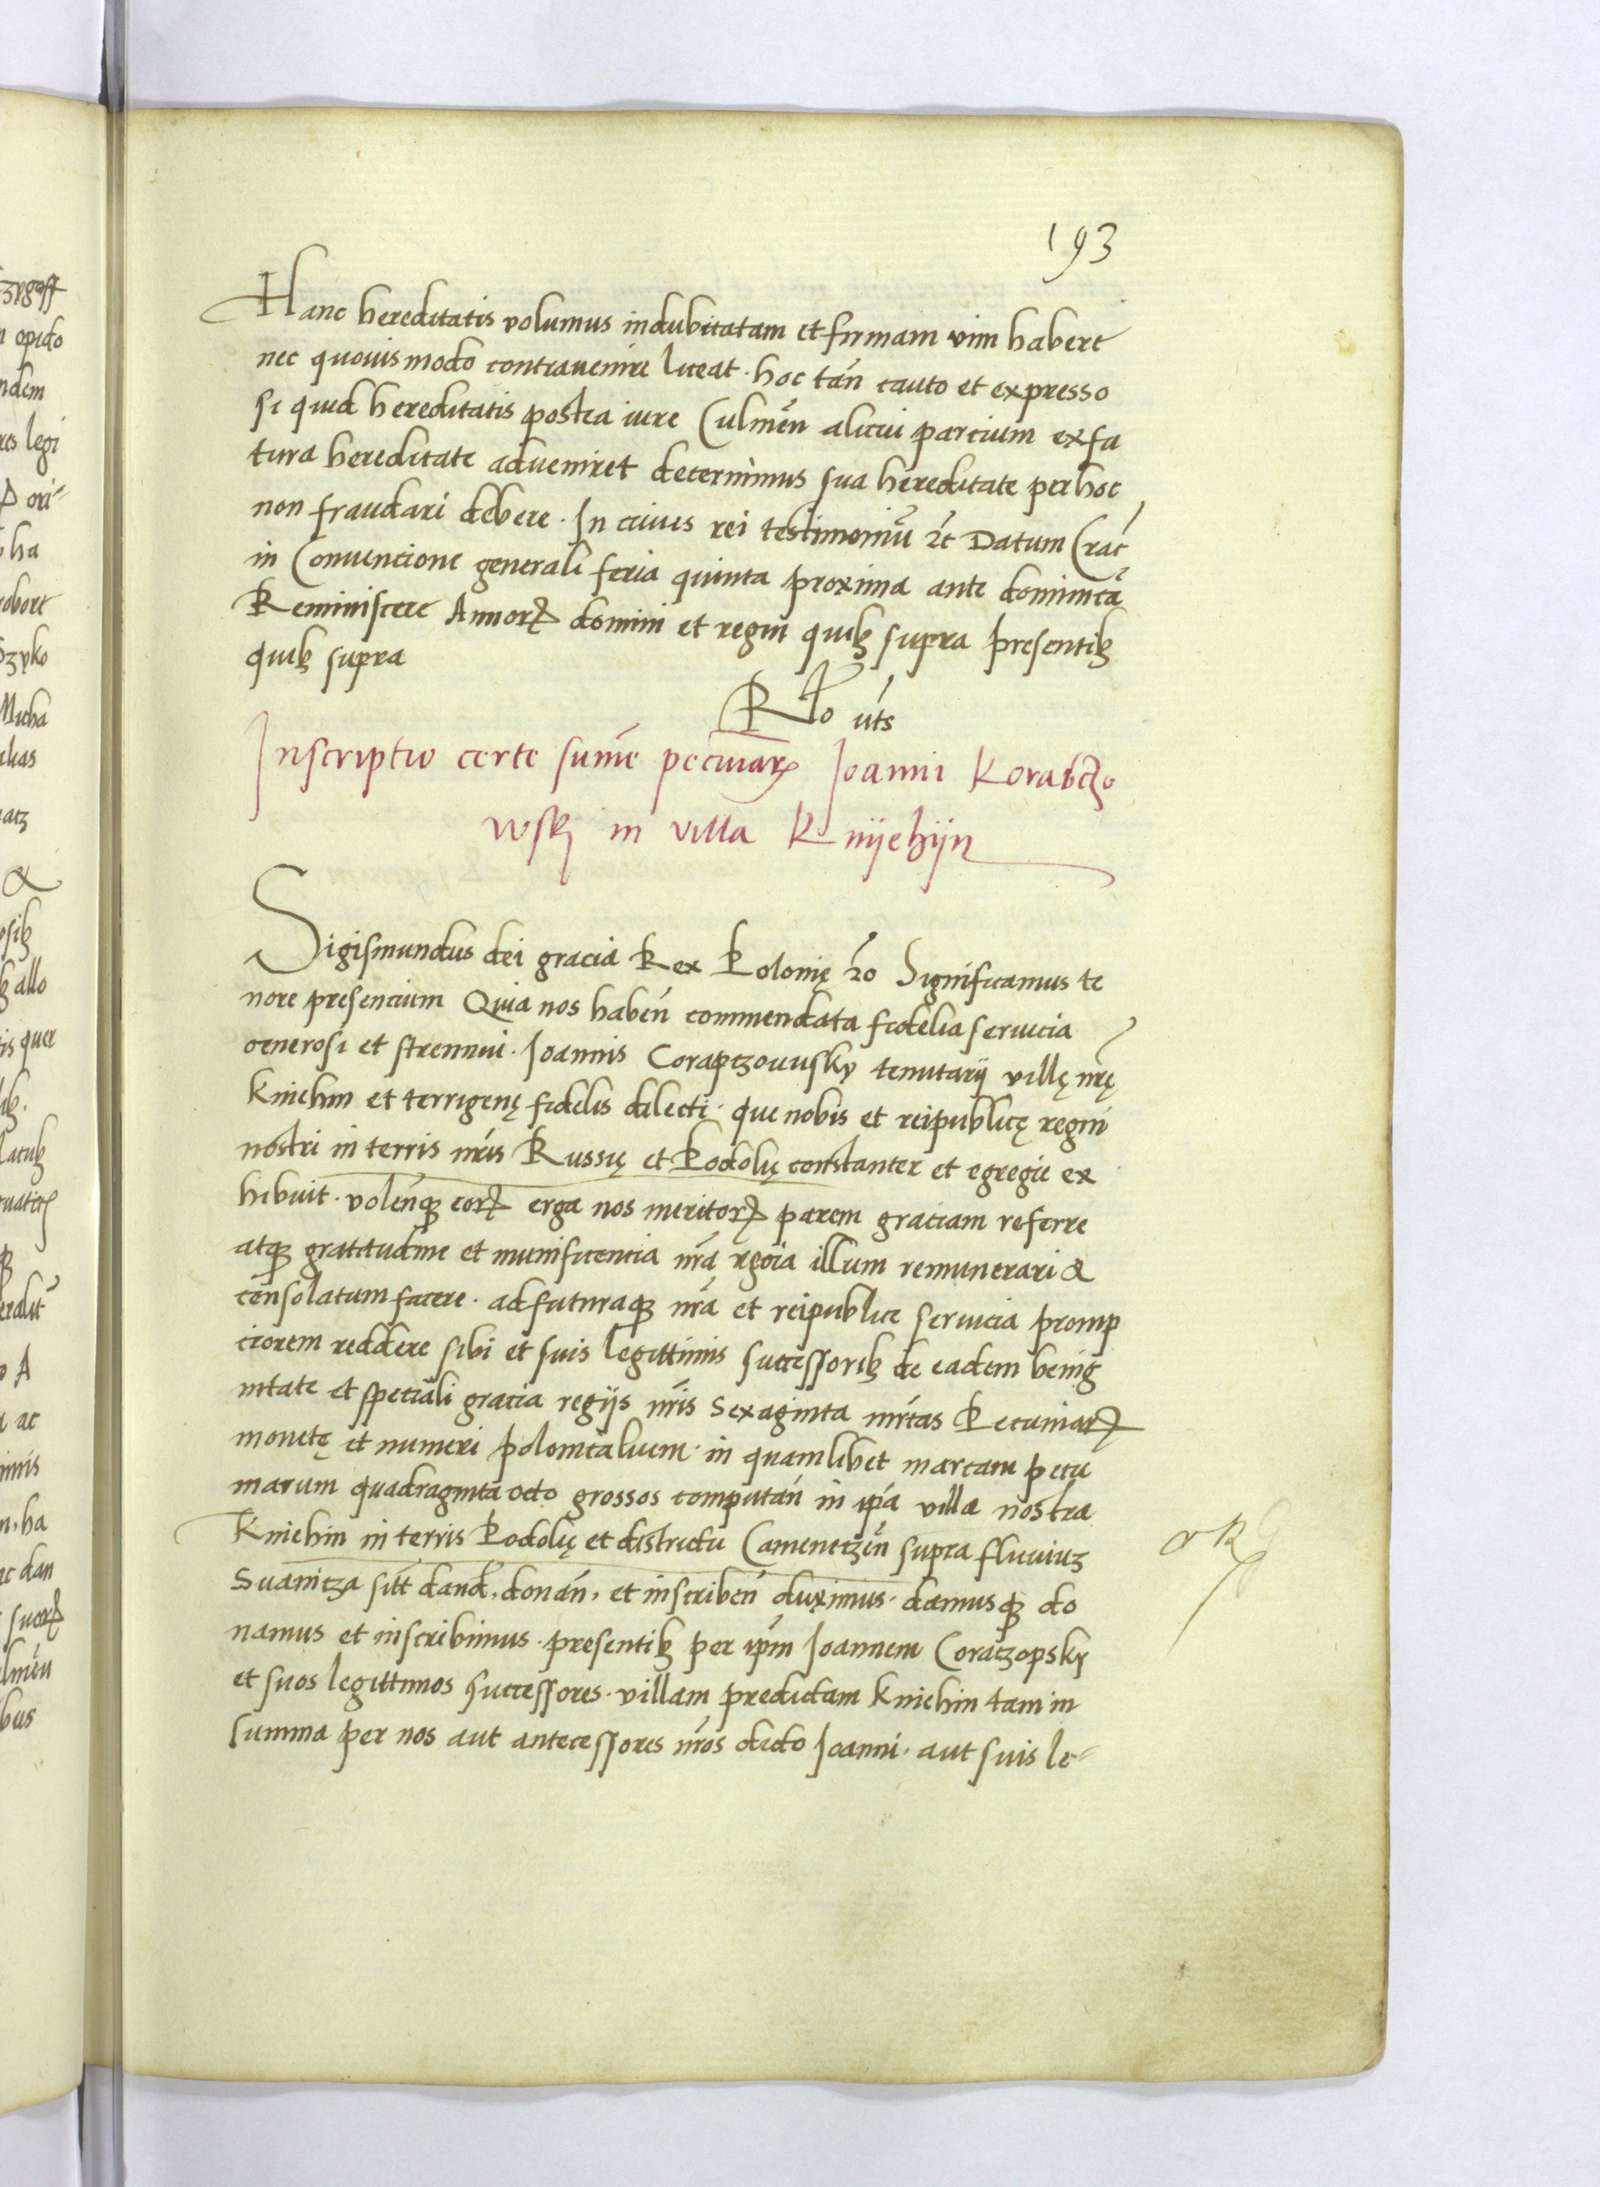 193
Hanc hereditatis volumus indubitatam et firmam vim habere
nec quouismodo contrauenire liceat · hoc tañ cauto et expresso
si quid hereditatis postea iure Culmeñ alicui parcium ex fa
tura hereditate adveniret decernimus sua hereditate per hoc
non fraudari debere · In cuius rei testimoniū ⁊c Datum Crac̃
in Conuencione generali feria quinta proxima ante dominicā
Reminiscere Annoꝝ domini et regni quibꝫ supra presentibꝫ
quibꝫ supra
Rlo ut̃s
Inscriptio certe sum̃e pecuniaꝝ Joanni Korabczo
wskj in villa Knijehijn
Sigismundus dei gracia Rex Polonię ⁊c Significamus te
nore presencium Quia nos habeñ commendata fidelia seruicia
generosi et strennui · Joannis Corapczouusky tenutarij villę nr̃ę
Kniehin et terrigenę fidelis dilecti · que nobis et reipublicę regni
nostri in terris nr̃is Russię et Podolię constanter et egregie ex
hibuit · volenqꝫ eoꝝ erga nos meritoꝝ parem graciam referre
atqꝫ gratitudine et munificencia nr̃a regia illum remunerari &
consolatum facere · ad futuraqꝫ nr̃a et reipublice seruicia promp
ciorem reddere sibi et suis legittimis successoribꝫ de eadem benig
nitate et speciali gracia regijs nr̃is sexaginta mr̃cas Pecuniaꝝ
monetę et numeri polonicalium · in quamlibet marcam pecu
niarum quadraginta octo grossos computañ in ip̃a villa nostra
Kniehin in terris Podolię et districtu Camenetzeñ supra fluuiuꝫ
Suanicza sitt dand̃, donañ, et inscribeñ duximus · damusqꝫ do
namus et inscribimus · presentibꝫ per ip̃m Joannem Coraczopsky
et suos legittimos successores · villam predictam Kniehin tam in
summa per nos aut antecessores nr̃os dicto Joanni · aut suis le-